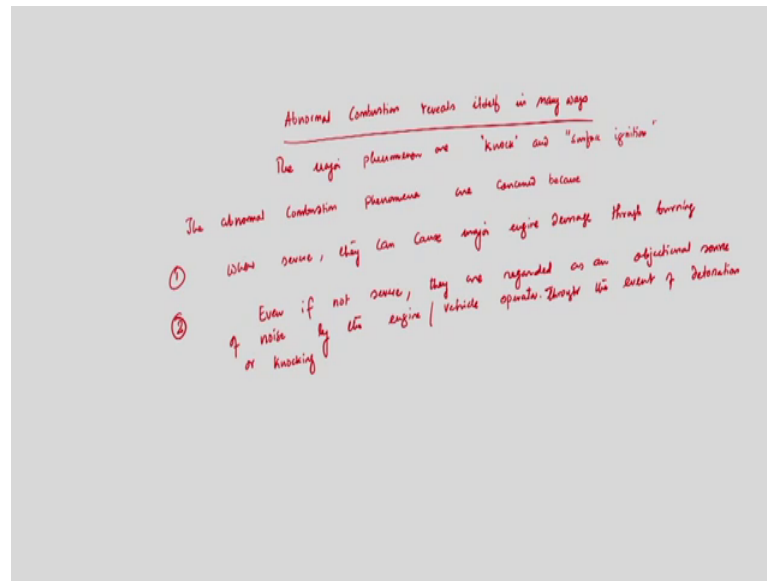 Abnormal Combustion reveals itself in many ways
The major phenomenon are 'Knock' and "Surface ignition"
The abnormal Combustion phenomena are concerned because
① When severe, they can cause major engine damage through burning
② Even if not severe, they are regarded as an objectional source
of noise by the engine / vehicle operator. Through the event of detonation
or knocking